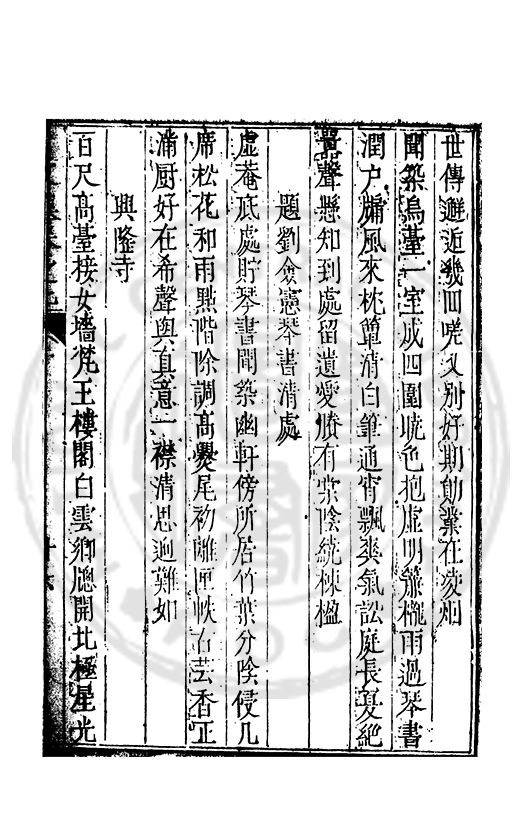 世傳邂近幾回嗟又別好期勛業在凌烟
聞築烏臺一室成四圍曉色抱虛明簾櫳雨過琴書
潤戶牖風來枕簟清白筆通宵飄爽氣訟庭長夏絕
囂聲懸知到處留遺愛賸有棠陰繞棟楹
題劉僉憲琴書清處
虛菴底處貯琴書聞築幽軒傍所居竹葉分陰侵几
席松花和雨點階除調高爨尾初離匣帙古芸香正
滿厨好在希聲與真意一襟清思迥難如
興隆寺
百尺高臺接女墻梵王樓閣白雲鄉牕開北極星光